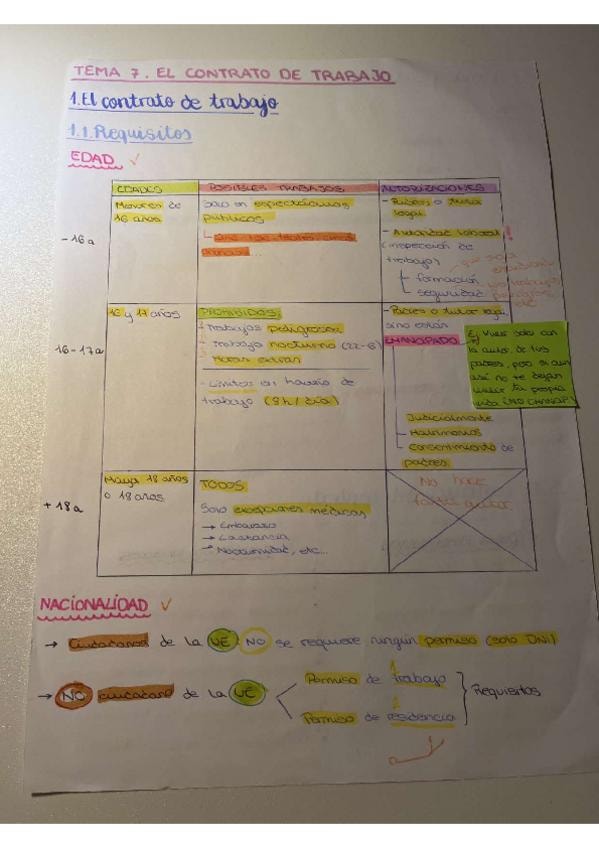 TEMA 7. EL CONTRATO DE TRABAJO
1. El contrato de trabajo
1.1. Requisitos
EDAD ✓
EDADES
POSIBLES TRABAJOS
AUTORIZACIONES
- 16 a
Menores de
16 años
Solo en espectáculos
públicos
- Padres o tutor
legal
- Autoridad laboral !
(inspección de
trabajo)
formación
seguridad
que sepa
etc
16-17a
16 y 17 años
PROHIBIDOS:
- Trabajos peligrosos
- Trabajo nocturno (22-6)
- Horas extras
- Límites en horario de
trabajo (8h/día)
- Padres o tutor legal
si no están
EMANCIPADO
Judicialmente
Matrimonios
Consentimiento de
padres
Ej. Vives solo con
la autor. de tus
padres, pero si aun
así no te dejan
tu propia
vida (NO EMANCIP)
+ 18 a
Mayor 18 años
o 18 años
TODOS
Solo excepciones médicas
→ Embarazo
→ Lactancia
→ Nocturnidad, etc...
No hace
falta autor
NACIONALIDAD ✓
→ Ciudadanos de la UE NO se requiere ningún permiso (solo DNI)
→ NO ciudadano de la UE
1
Permiso de trabajo
2
Permiso de residencia
Requisitos